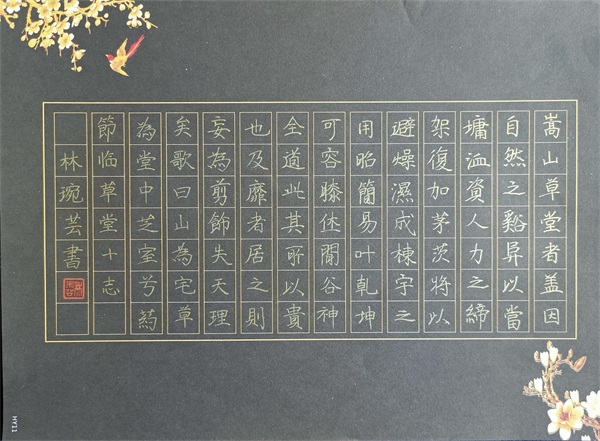 嵩山草堂者盖因
自然之谿阜以當
墉洫資人力之締
架復加茅茨將以
避燥濕成棟宇之
用昭簡易叶乾坤
可容膝休閒谷神
全道此其所以貴
也及靡者居之則
妄為剪飾失天理
矣歌曰山為宅草
為堂中芝室兮葯
節临草堂十志
林琬芸書
HY11